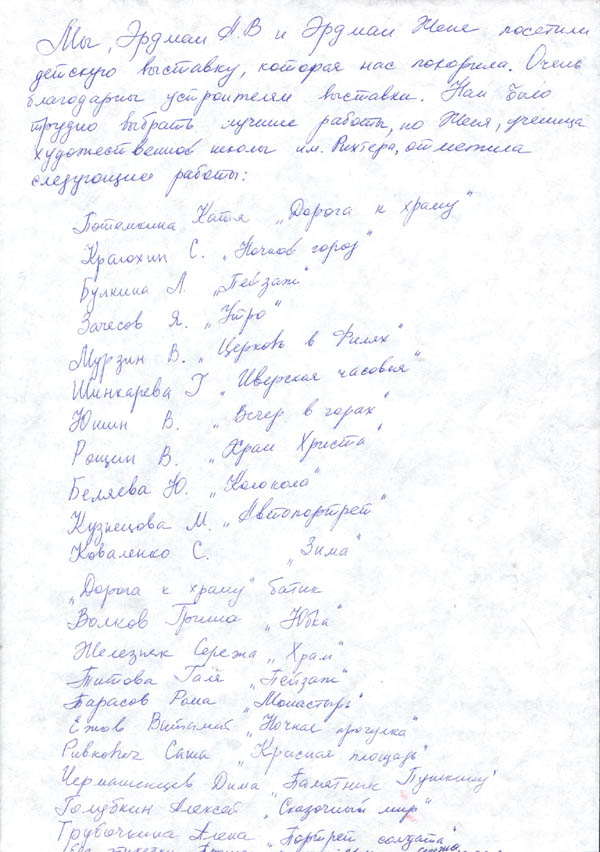 Мы, Эрдман А.В и Эрдман Женя посетили
детскую выставку, которая нас покорила. Очень
благодарны устроителям выставки. Нам было
трудно выбрать лучшие работы, но Женя, ученица
художественной школы им. Рихтера, отметила
следующие работы:
Потемкина Катя „Дорога к храму“
Крагохин С. „Ночной город“
Булкина Л. „Пейзаж“
Зачесов Я. „Утро“
Мурзин В. „Церковь в Филях“
Шинкарева Г „Иверская часовня“
Юшин В. „Вечер в горах“
Рощин В. „Храм Христа“
Беляева Ю. „Колокола“
Кузнецова М. „Автопортрет“
Коваленко С. „Зима“
„Дорога к храму“ батик
Волков Гриша „Юбка“
Железняк Сережа „Храм“
Титова Галя „Пейзаж“
Тарасов Рома „Монастырь“
Ежов Виталий „Ночная прогулка“
Ривкович Саша „Красная площадь“
Чермашенцев Дима „Памятник Пушкину“
Голубкин Алексей „Сказочный мир“
Трубочкина Алена „Портрет солдата“